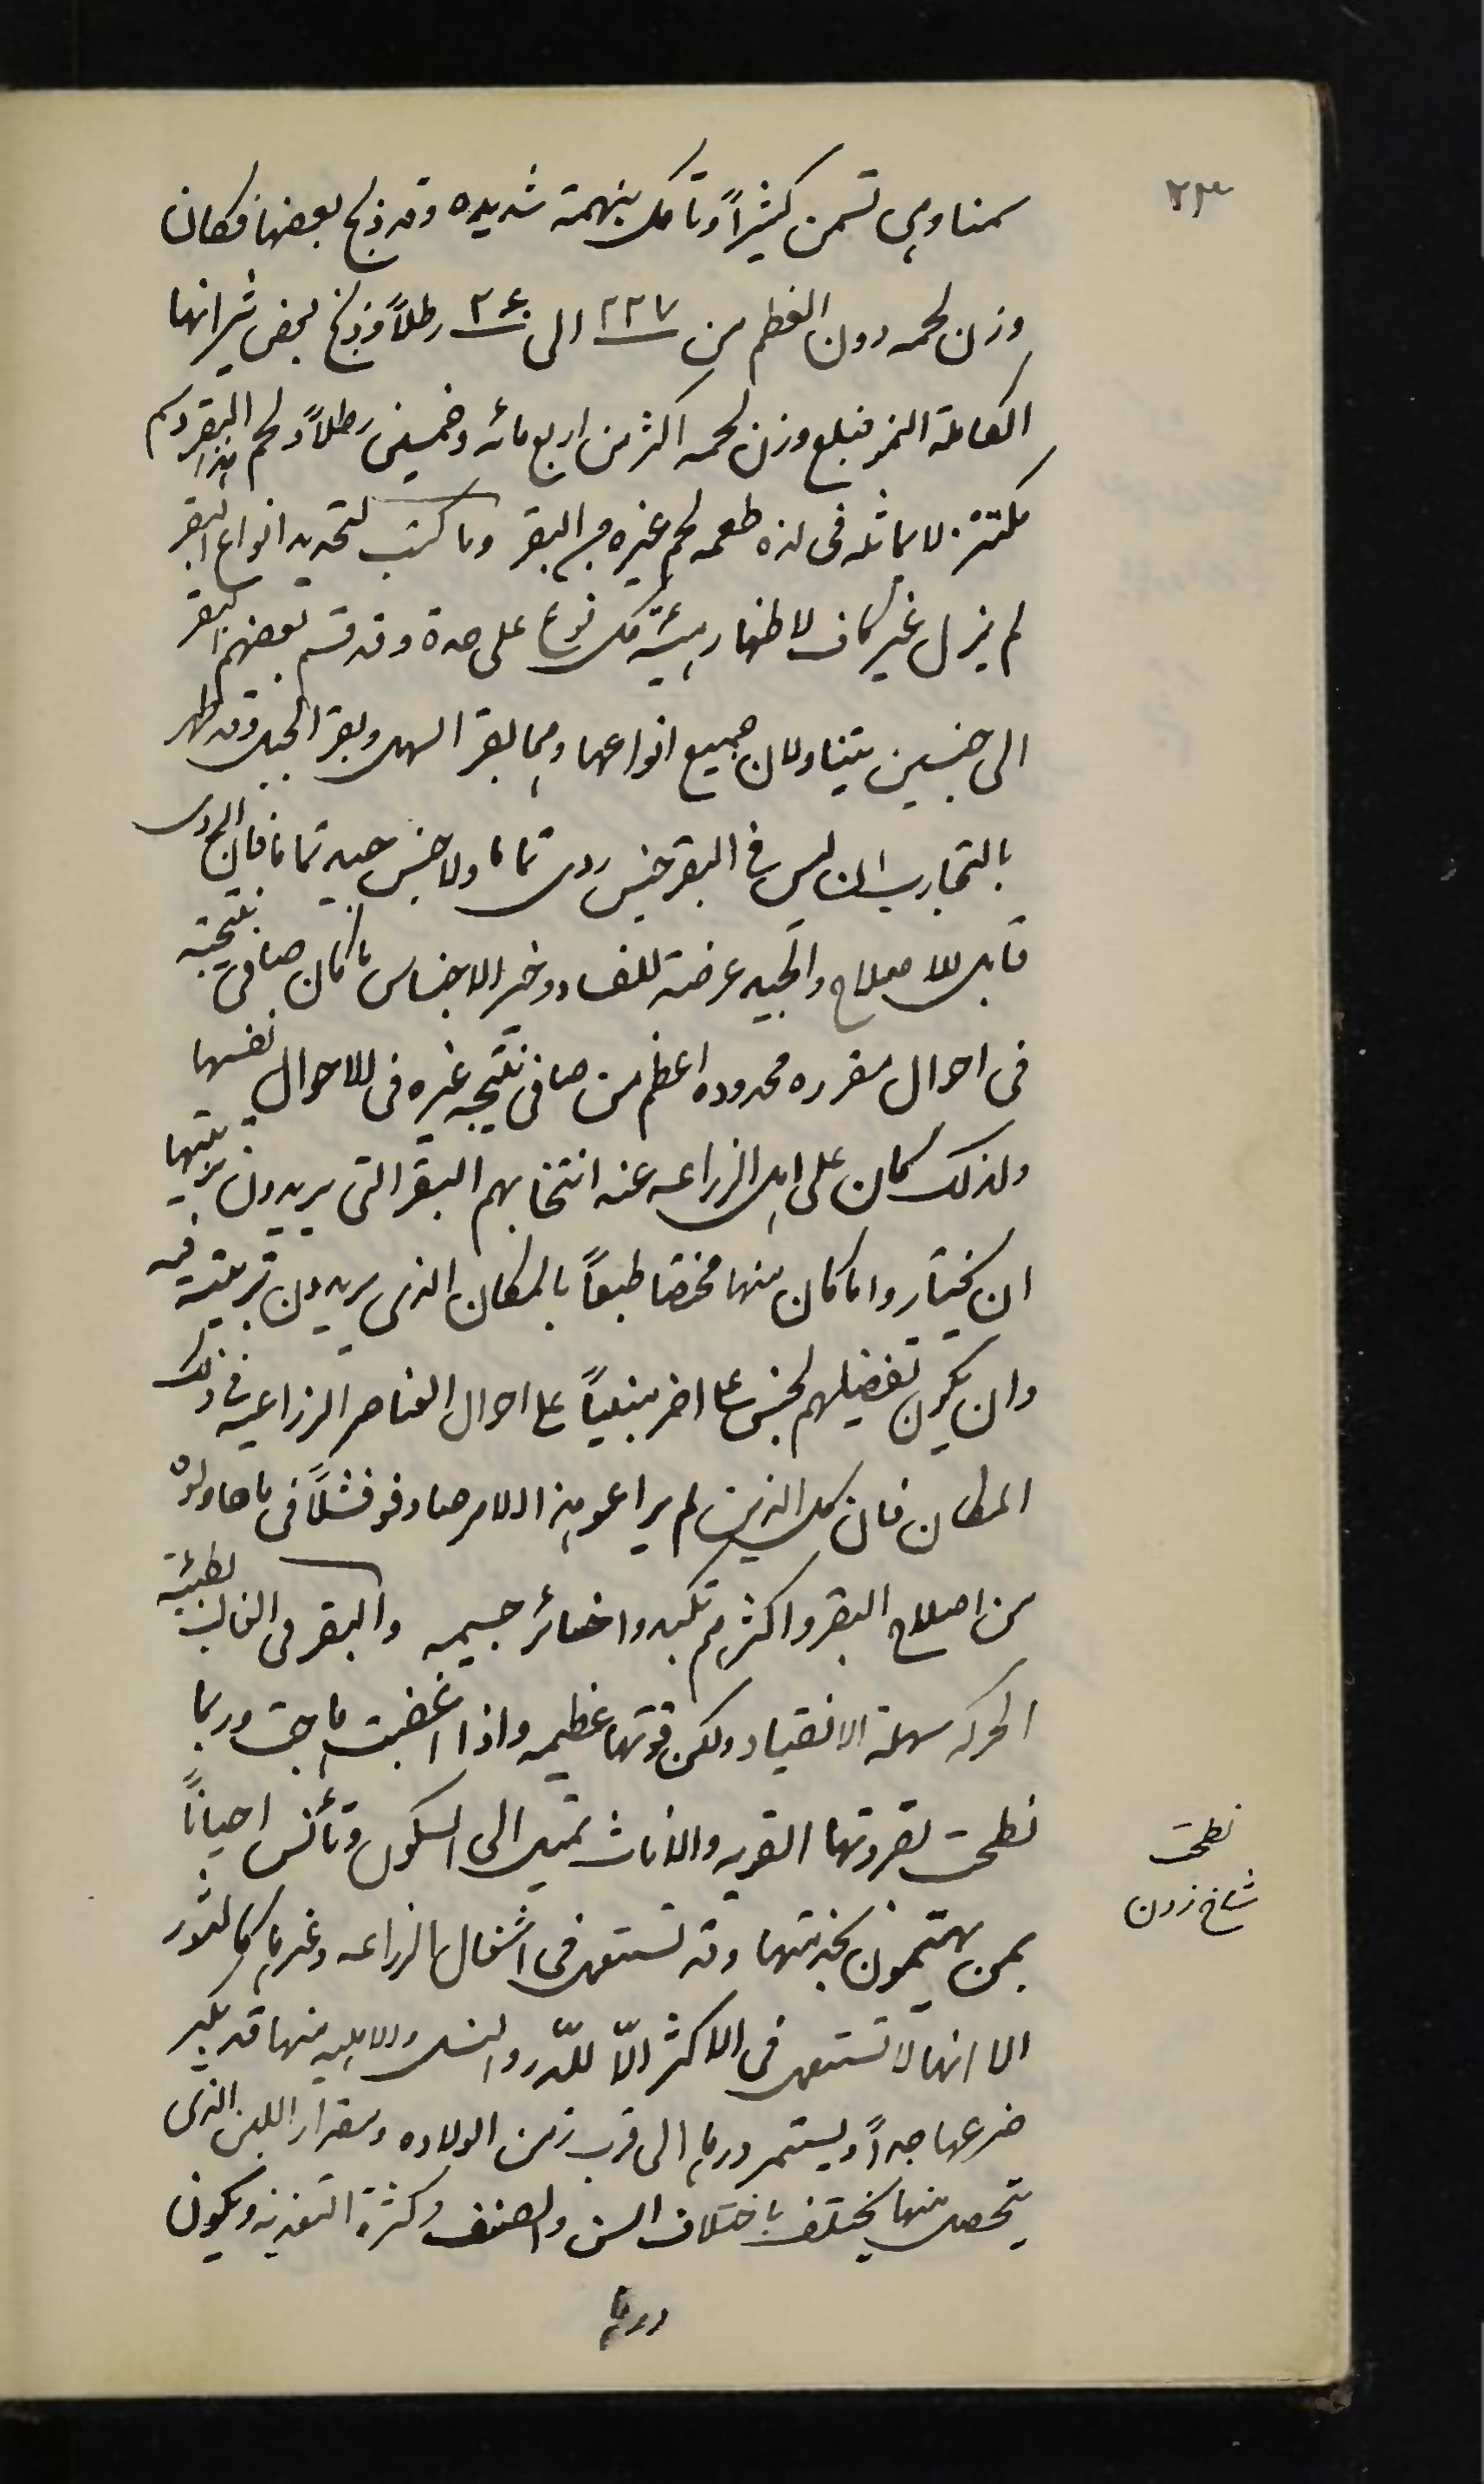 ٢٣
سمنا وهی تسمن کثیراً وتأکل بنهمة شدیده وقد ذبح بعضها فکان
وزن لحمه دون العظم من ٢٢٧ الی ٢۶٠ رطلاً وذبح بعض ثیرانها
الکاملة النمو فبلغ وزن لحمه اکثر من اربع مائه وخمسین رطلاً ولحم هذا البقر دسم
مکتنز لا یماثله فی لذه طعمه لحم غیره من البقر وما کتب لتحدید انواع البقر
لم یزل غیر کاف لاظهار هیئة کل نوع علی حدة وقد قسم بعضهم البقر
الی جنسین یتناولان جمیع انواعها وهما بقر السهل وبقر الجبل وقد ظهر
بالتجارب ان لیس فی البقر جنس ردی تماما ولا جنس جید تماما فان الردی
قابل للاصلاح والجید عرضة للفساد وخیر الاجناس ما کان صافی نتیجته
فی احوال مقرره محدوده اعظم من صافی نتیجه غیره فی الاحوال نفسها
ولذلک کان علی اهل الزراعه عند انتخابهم البقر التی یریدون تربیتها
ان یختاروا ما کان منها مختصا طبعاً بالمکان الذی یریدون تربیته فیه
وان یکون تفضیلهم لجنس علی اخر مبنیاً علی احوال العناصر الزراعیه فی ذلک
المکان فان کل الذین لم یراعو هذا الامر صادفو فشلاً فی ما حاولوه
من اصلاح البقر واکثرهم تکبدوا خسائر جسیمه والبقر فی الغالب بطیئة
الحرکه سهلة الانقیاد ولکن قوتها عظیمه واذا اغضبت هاجت وربما
نطحت بقرونها القویه والاناث تمیل الی السکون وتأنس احیاناً
بمن یهتمون بخدمتها وقد تستعمل فی اشغال الزراعه وغیرها کالثور
الا انها لا تستعمل فی الاکثر الّا للدّر والنسل والاهلیه منها قد یکبر
ضرعها جداً ویستمر درها الی قرب زمن الولاده ومقدار اللبن الذی
یتحصل منها یختلف باختلاف السن والصنف وکثرة التغذیه ویکون
درها
نطحت
شاخ زدن